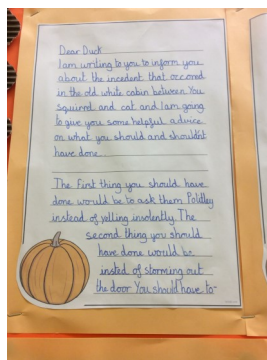 Dear Duck
I am writing to you to inform you
about the incedent that occored
in the old white cabin between You
Squirrel and cat and I am going
to give you some helpful advice
on what you should and shouldnt
have done
The First thing you should have
done would be to ask them Politley
instead of yelling insolently. The
second thing you should
have done would be
insted of storming out
the door You should have to-